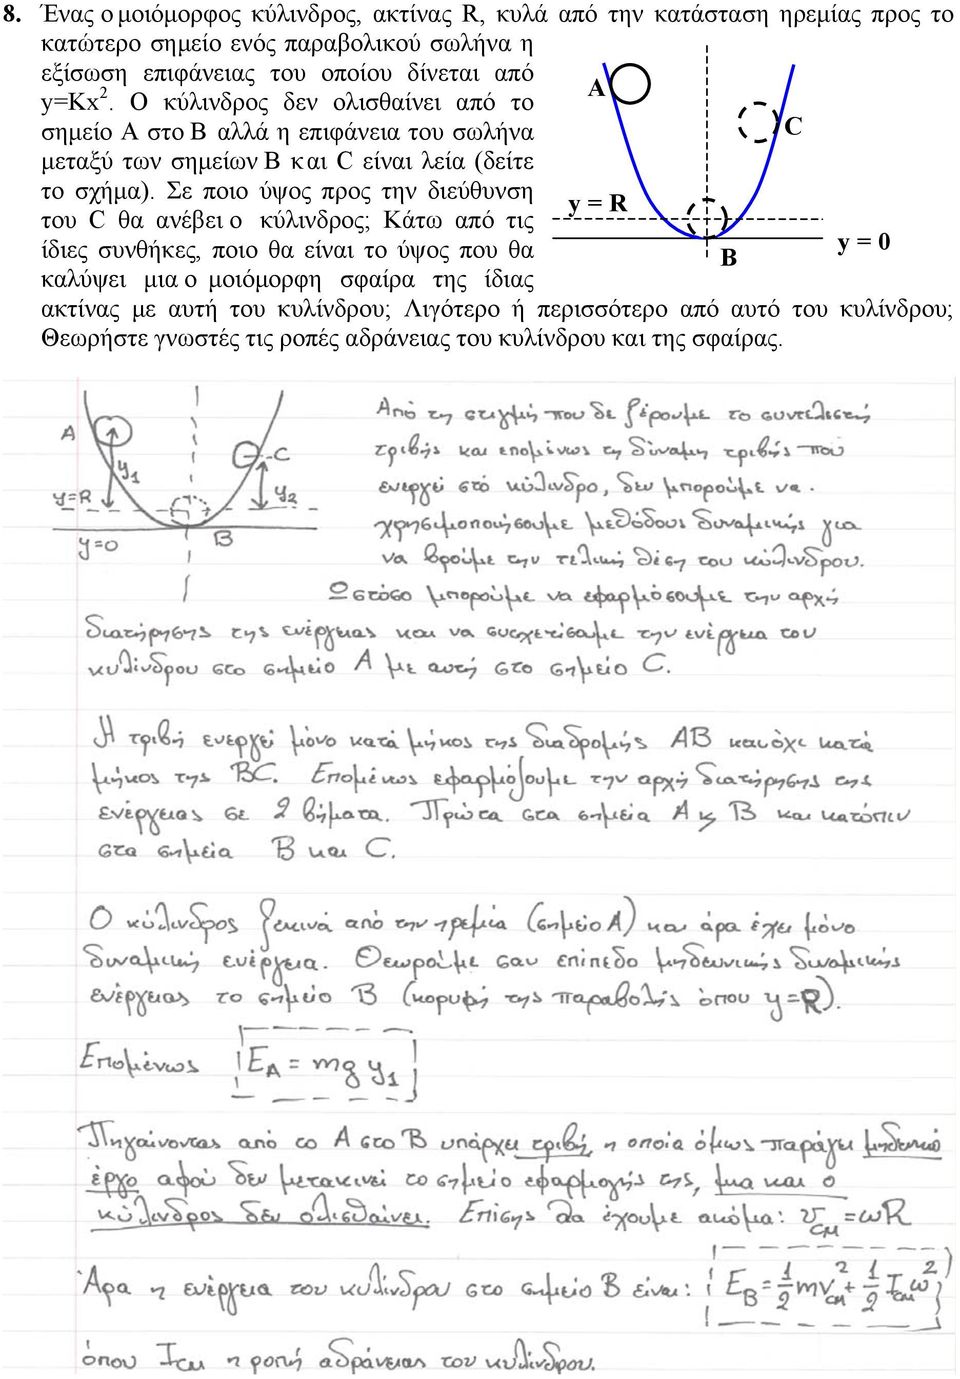 8. Ένας ομοιόμορφος κύλινδρος, ακτίνας R, κυλά από την κατάσταση ηρεμίας προς το
κατώτερο σημείο ενός παραβολικού σωλήνα η
εξίσωση επιφάνειας του οποίου δίνεται από
y=Kx². Ο κύλινδρος δεν ολισθαίνει από το
σημείο Α στο Β αλλά η επιφάνεια του σωλήνα
μεταξύ των σημείων Β και C είναι λεία (δείτε
το σχήμα). Σε ποιο ύψος προς την διεύθυνση
του C θα ανέβει ο κύλινδρος; Κάτω από τις
ίδιες συνθήκες, ποιο θα είναι το ύψος που θα
καλύψει μια ομοιόμορφη σφαίρα της ίδιας
ακτίνας με αυτή του κυλίνδρου; Λιγότερο ή περισσότερο από αυτό του κυλίνδρου;
Θεωρήστε γνωστές τις ροπές αδράνειας του κυλίνδρου και της σφαίρας.
A
C
y = R
y = 0
B
A
y₁
C
y=R
y₂
y=0
B
Από τη στιγμή που δε ξέρουμε το συντελεστή
τριβής και επομένως τη δύναμη τριβής που
ενεργεί στο κύλινδρο, δεν μπορούμε να
χρησιμοποιήσουμε μεθόδους δυναμικής για
να βρούμε την τελική θέση του κύλινδρου.
Ωστόσο μπορούμε να εφαρμόσουμε την αρχή
διατήρησης της ενέργειας και να συσχετίσουμε την ενέργεια του
κυλίνδρου στο σημείο Α με αυτή στο σημείο C.
Η τριβή ενεργεί μόνο κατά μήκος της διαδρομής AB και όχι κατά
μήκος της BC. Επομένως εφαρμόζουμε την αρχή διατήρησης της
ενέργειας σε 2 βήματα. Πρώτα στα σημεία A κ B και κατόπιν
στα σημεία B και C.
Ο κύλινδρος ξεκινά από την ηρεμία (σημείο Α) και άρα έχει μόνο
δυναμική ενέργεια. Θεωρούμε σαν επίπεδο μηδενικής δυναμικής
ενέργειας το σημείο B (κορυφή της παραβολής όπου y=R).
Επομένως E_A = mg y₁
Πηγαίνοντας από το A στο B υπάρχει τριβή, η οποία όμως παράγει μηδενικό
έργο αφού δεν μετακινεί το σημείο εφαρμογής της, μια και ο
κύλινδρος δεν ολισθαίνει. Επίσης θα έχουμε ακόμα: υ_CM = ωR
Άρα η ενέργεια του κυλίνδρου στο σημείο B είναι: E_B = 1/2 mv²_CM + 1/2 I_CM ω²
όπου I_CM η ροπή αδράνειας του κυλίνδρου.